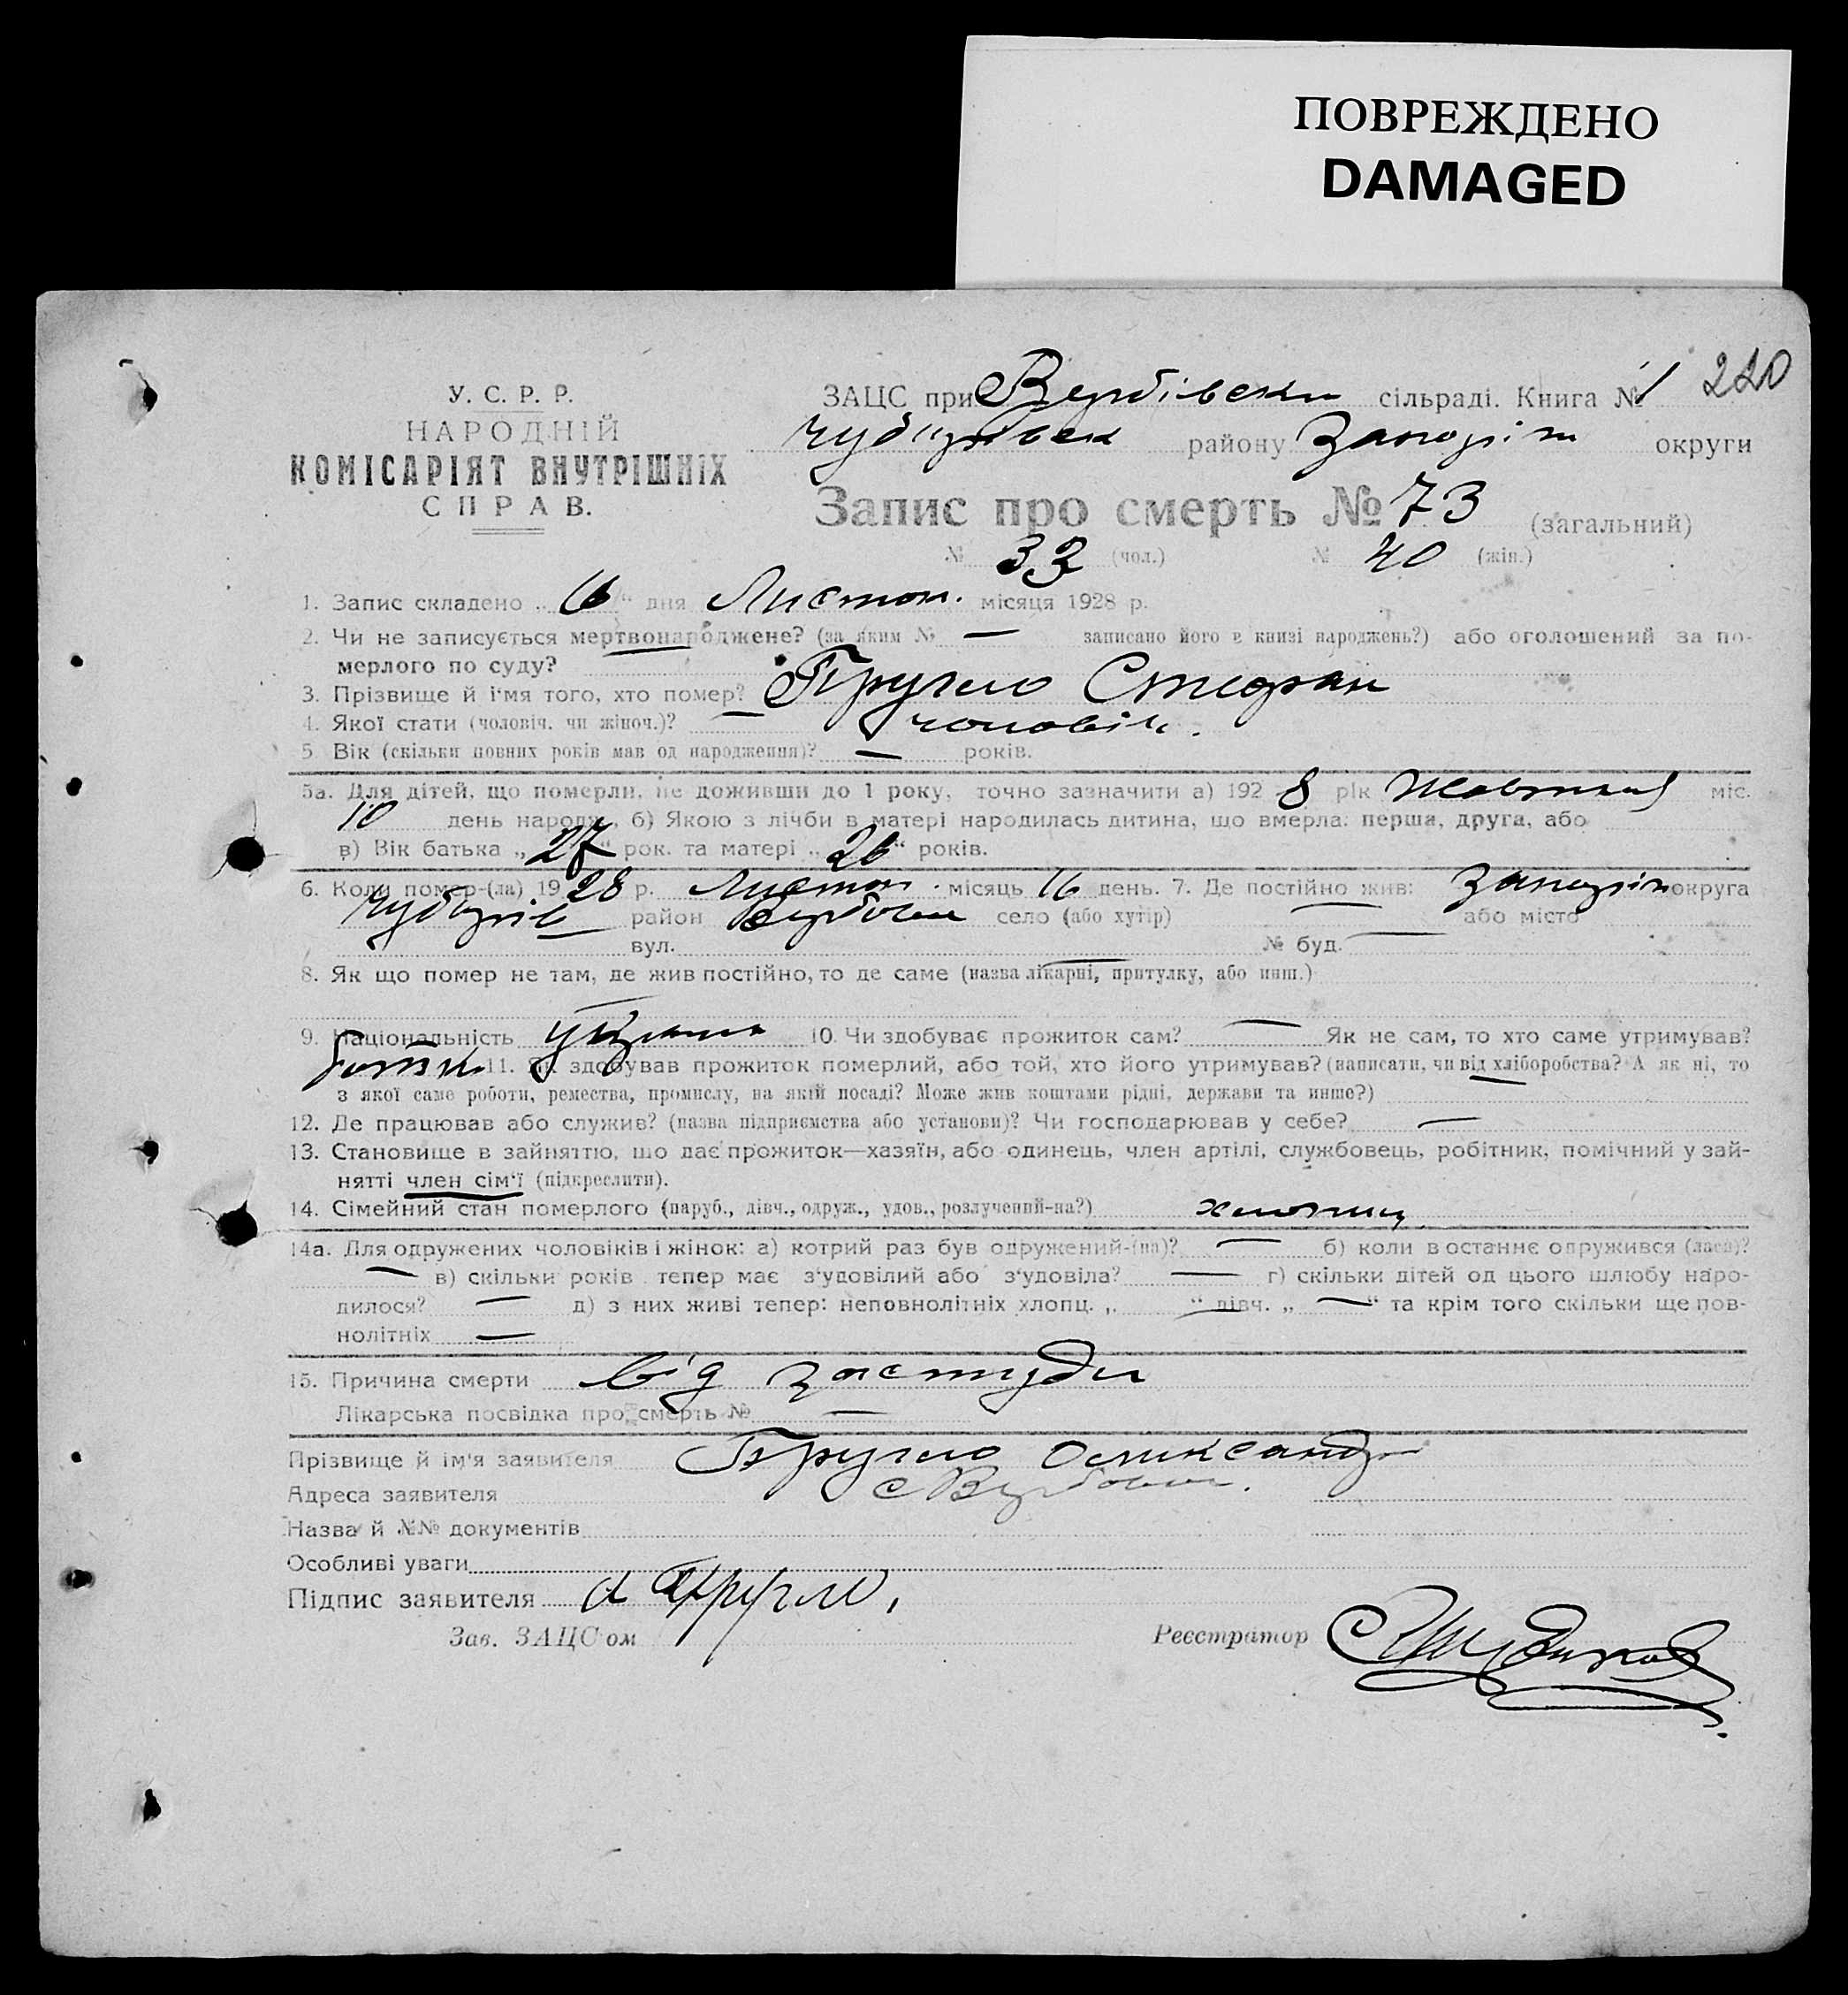 ПОВРЕЖДЕНО
DAMAGED
220
У. С. Р. Р.
НАРОДНІЙ
КОМІСАРІЯТ ВНУТРІШНІХ
СПРАВ.
ЗАЦС при Вербівськи сільраді. Книга № 1
району Запоріж округи
Запис про смерть № 73 (загальний)
№ 33 (чол.) № 40 (жін.)
1. Запис складено „16“ дня Листоп. місяця 1928 р.
2. Чи не записується мертвонароджене? (за яким № — записано його в книзі народжень?) або оголошений за по-
мерлого по суду?
3. Прізвище й і'мя того, хто помер? Пругло Стефан
4. Якої стати (чоловіч. чи жіноч.)? чоловіч.
5 Вік (скільки повних років мав од народження)? — років.
5а. Для дітей, що померли, не доживши до 1 року, точно зазначити а) 192 8 рік Жовтня міс.
10 день народж., б) Якою з лічби в матері народилась дитина, що вмерла: перша, друга, або
в) Вік батька „27“ рок. та матері „26“ років.
6. Коли помер-(ла) 1928 р. Листоп. місяць 16 день. 7. Де постійно жив: Запоріж округа
район Вербове село (або хутір) — або місто
вул. № буд. —
8. Як що помер не там, де жив постійно, то де саме (назва лікарні, притулку, або инш.)
9. Національність 10. Чи здобуває прожиток сам? — Як не сам, то хто саме утримував?
батьки 11. Як здобував прожиток померлий, або той, хто його утримував? (написати, чи від хліборобства? А як ні, то
з якої саме роботи, ремества, промислу, на якій посаді? Може жив коштами рідні, держави та инше?)
12. Де працював або служив? (назва підприємства або установи)? Чи господарював у себе? —
13. Становище в зайняттю, що дає прожиток—хазяїн, або одинець, член артілі, службовець, робітник, помічний у зай-
нятті член сім'ї (підкреслити).
14. Сімейний стан померлого (паруб., дівч., одруж., удов., розлучений-на?) хлопець
14а. Для одружених чоловіків і жінок: а) котрий раз був одружений-(на)? — б) коли востаннє одружився (лася)?
— в) скільки років тепер має з'удовілий або з'удовіла? — г) скільки дітей од цього шлюбу наро-
дилося? — д) з них живі тепер: неповнолітніх хлопц. „ “ дівч. „ — “ та крім того скільки ще пов-
нолітніх —
15. Причина смерти від застуди
Лікарська посвідка про смерть № —
Прізвище й ім'я заявителя Пругло Олександр
Адреса заявителя с Вербове.
Назва й №№ документів
Особливі уваги
Підпис заявителя А Пругло,
Зав. ЗАЦС'ом Реєстратор